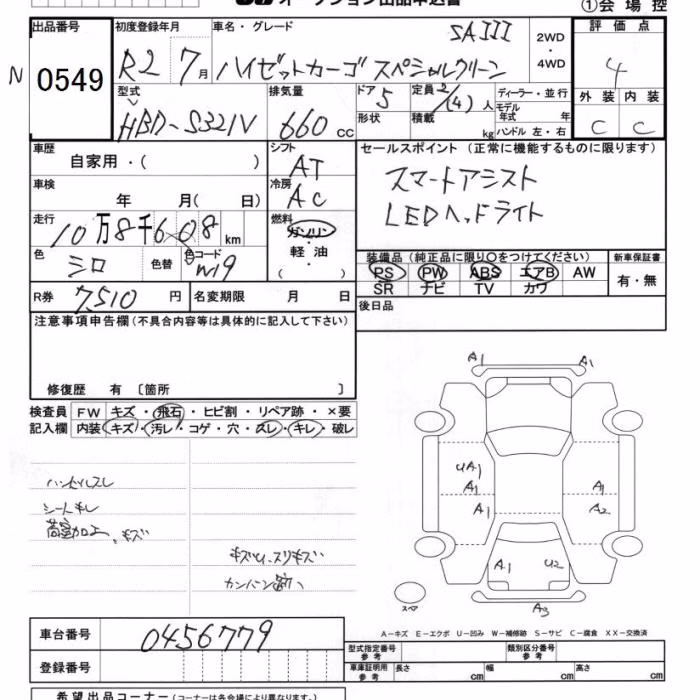 オークション出品申込書 ①会場控
出品番号 初度登録年月 車名・グレード SAIII 2WD ・ 4WD 評価点
N 0549 R2 7月 ハイゼットカーゴ スペシャルクリーン 4
型式 排気量 ドア 5 定員 2/(4)人 ディーラー・並行 外装 内装
HBD-S321V 660 cc 形状 積載 kg モデル年式 年 ハンドル 左・右 C C
車歴 自家用・( ) シフト AT セールスポイント (正常に機能するものに限ります)
車検 年 月( 日) 冷房 AC スマートアシスト
走行 10万8千608km 燃料 ガソリン・軽油・( ) LEDヘッドライト
色 シロ 色替 色コード W19
装備品 (純正品に限り○をつけてください) 新車保証書
PS PW ABS エアB AW 有・無
SR ナビ TV カワ
R券 7,510 円 名変期限 月 日 後日品
注意事項申告欄 (不具合内容等は具体的に記入して下さい)
修復歴 有 〔箇所 〕
検査員 FW キズ・飛石・ヒビ割・リペア跡・×要
記入欄 内装 キズ・汚レ・コゲ・穴・スレ・キレ・破レ
ハンドルスレ
シートキレ
荷室加工、キズ
キズU、スリキズ
カンバン跡
A1 A1
UA1
A1 A1
A1 A2
A1 U2
スペア A3
A-キズ E-エクボ U-凹み W-補修跡 S-サビ C-腐食 XX-交換済
車台番号 0456779
型式指定番号 参考 類別区分番号 参考
登録番号 車庫証明用 参考 長さ cm 幅 cm 高さ cm
希望出品コーナー (コーナーは各会場により異なります。)